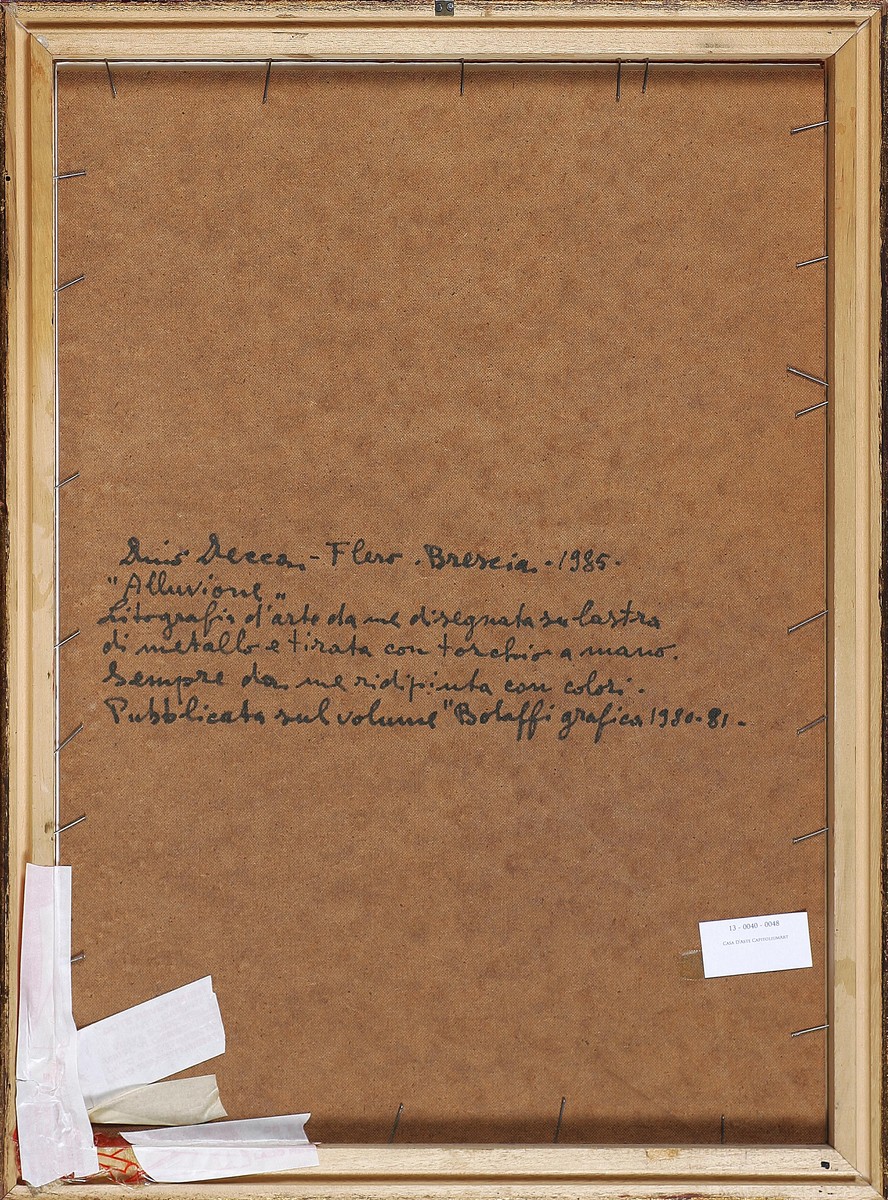 Dino Decca - Flero . Brescia - 1985 -
"Alluvione"
Litografia d'arte da me disegnata su lastra
di metallo e tirata con torchio a mano.
Sempre da me ridipinta con colori.
Pubblicata sul volume "Bolaffi grafica 1980-81 -
13 - 0040 - 0048
Casa D'Aste Capitoliumart